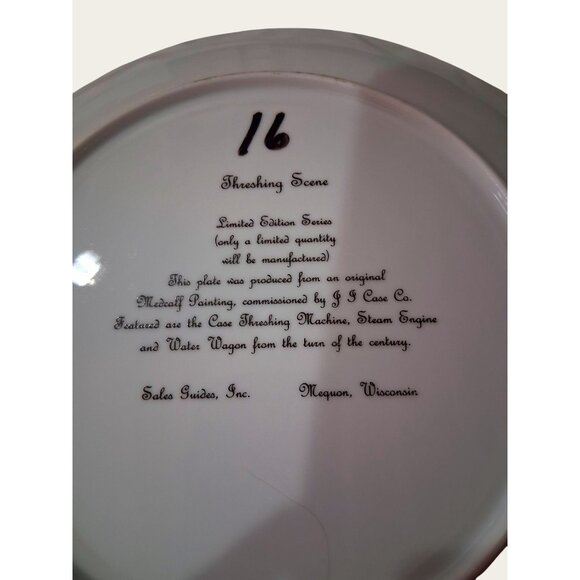 16
Threshing Scene
Limited Edition Series
(only a limited quantity
will be manufactured)
This plate was produced from an original
Medcalf Painting, commissioned by J I Case Co.
Featured are the Case Threshing Machine, Steam Engine
and Water Wagon from the turn of the century.
Sales Guides, Inc. Mequon, Wisconsin